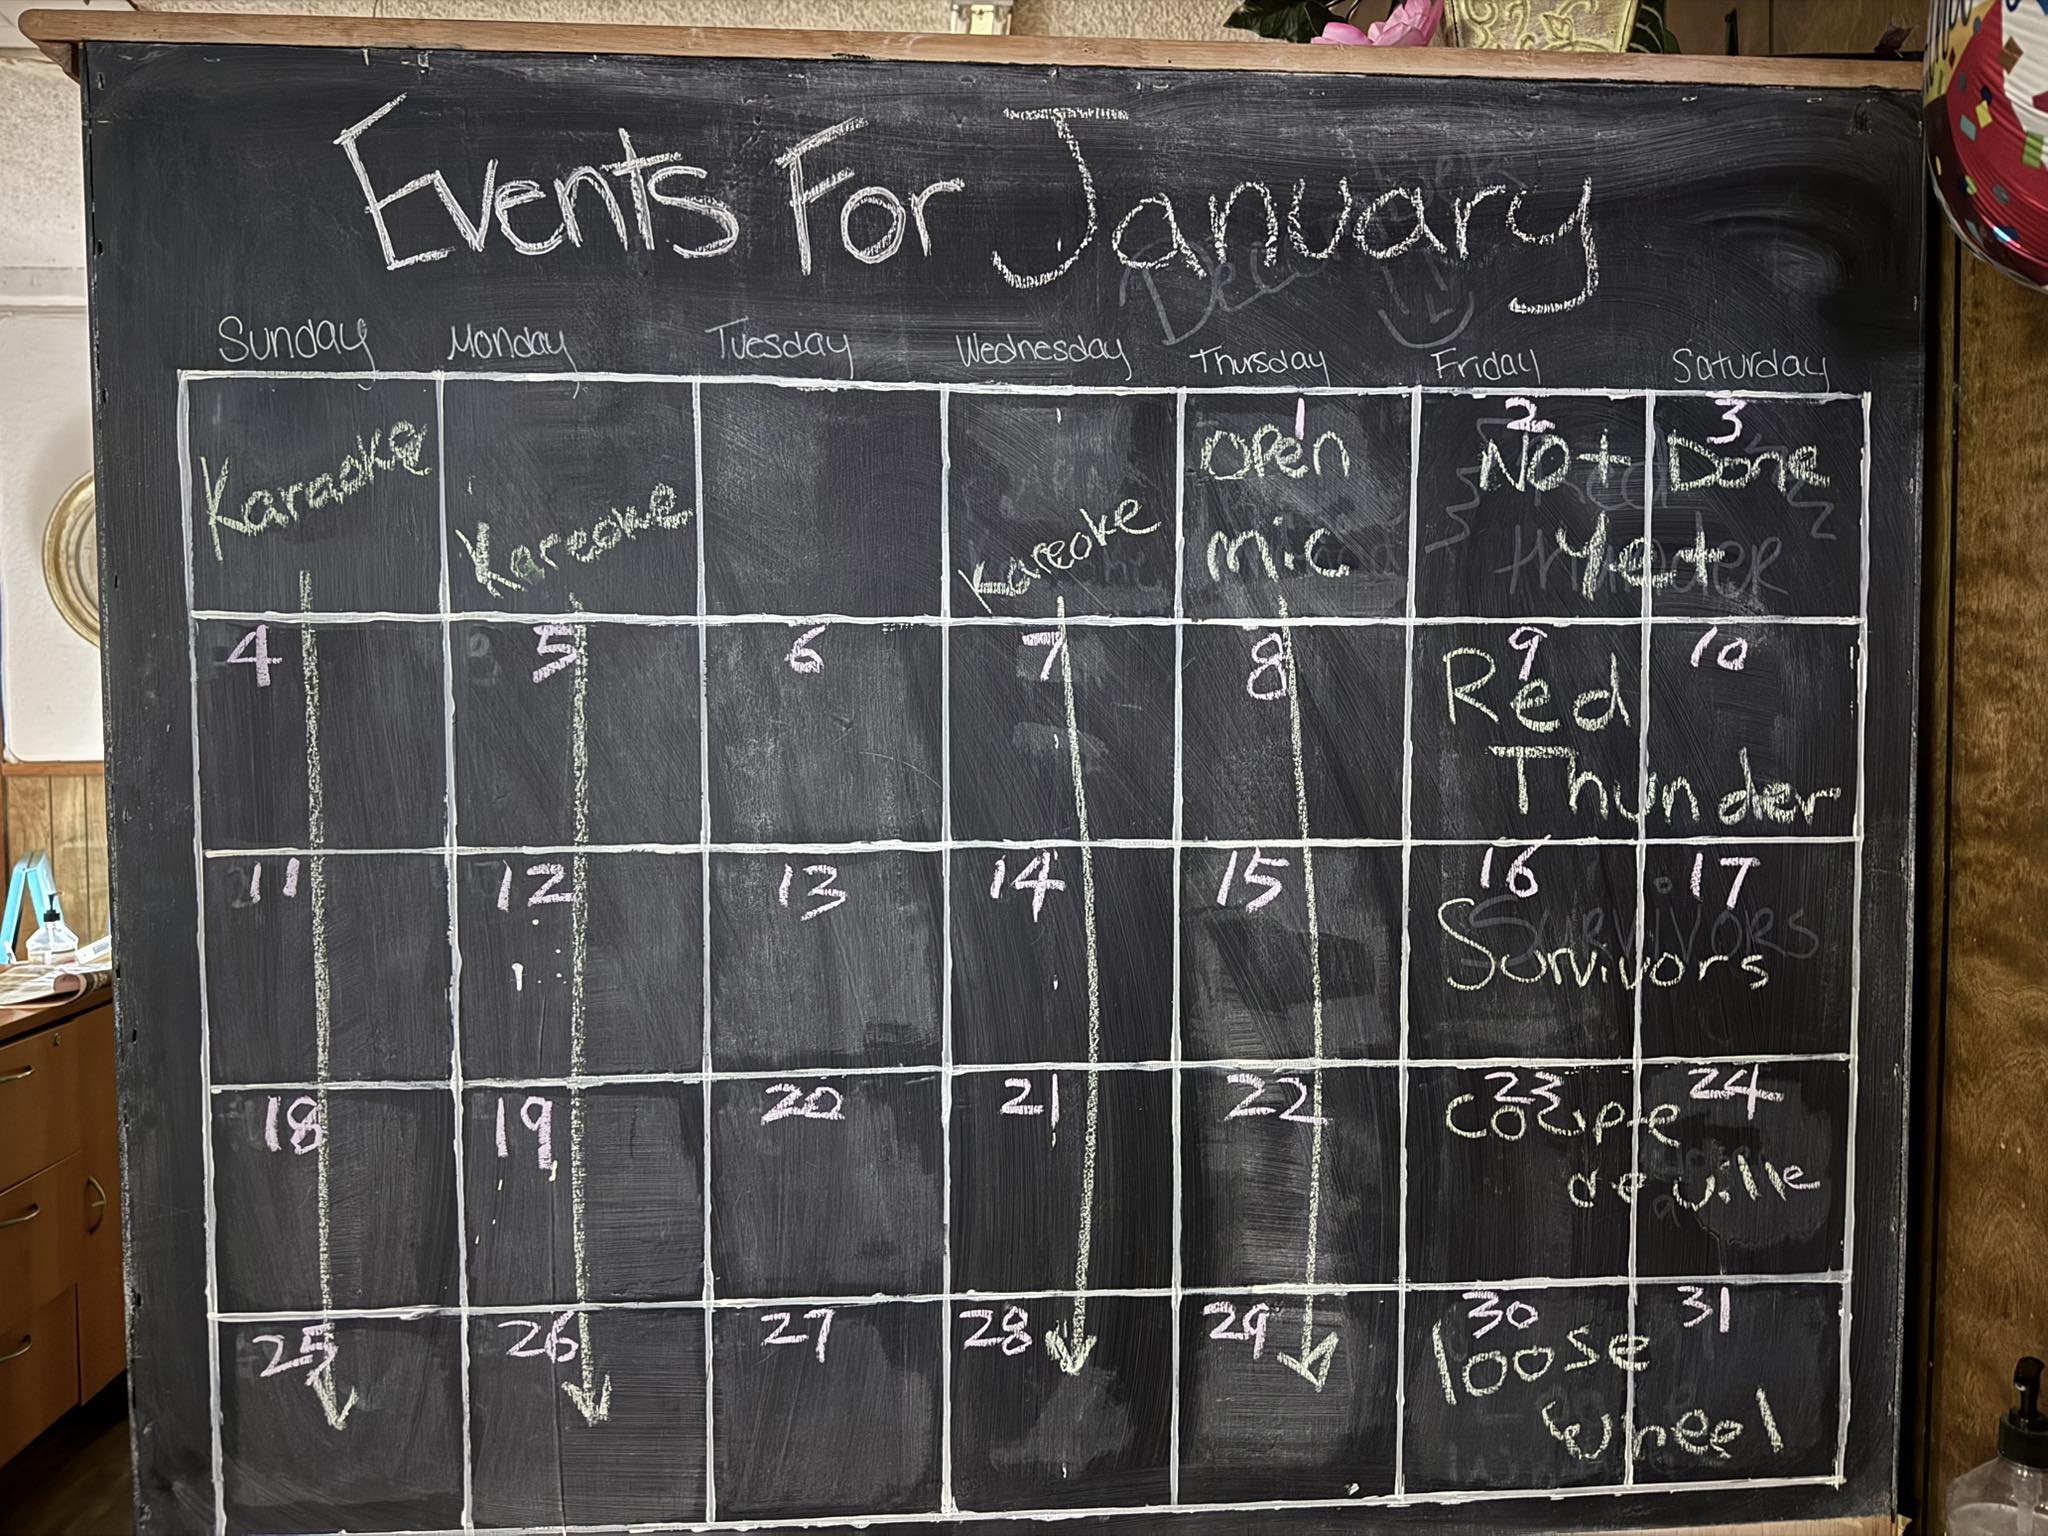 Events For January
Sunday Monday Tuesday Wednesday Thursday Friday Saturday
1 2 3
Karaoke Kareoke Kareoke Open Not Done
Mic Yet
4 5 6 7 8 9 10
Red
Thunder
11 12 13 14 15 16 17
Survivors
18 19 20 21 22 23 24
Coupe
deville
25 26 27 28 29 30 31
loose
wheel